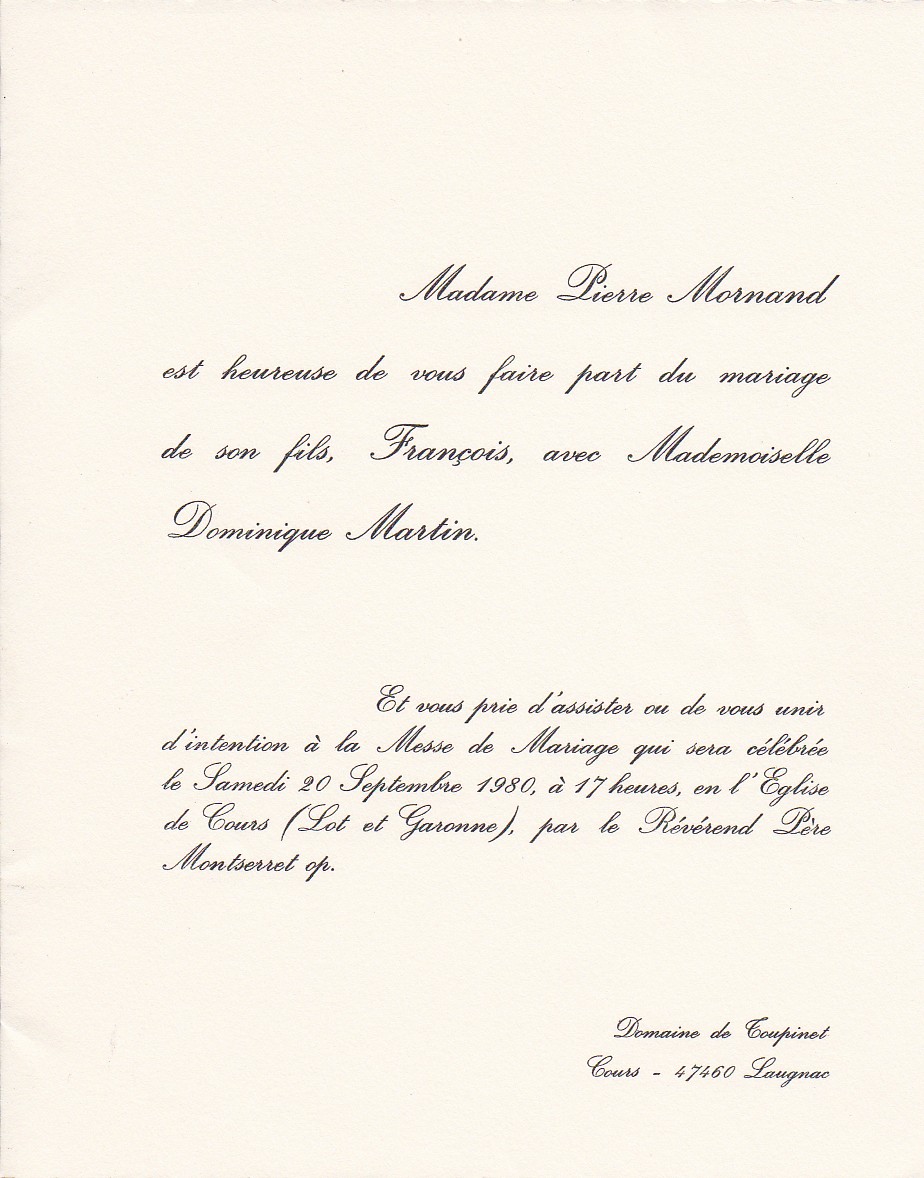 Madame Pierre Mornand
est heureuse de vous faire part du mariage
de son fils, François, avec Mademoiselle
Dominique Martin.
Et vous prie d'assister ou de vous unir
d'intention à la Messe de Mariage qui sera célébrée
le Samedi 20 Septembre 1980, à 17 heures, en l'Eglise
de Cours (Lot et Garonne), par le Révérend Père
Montserret op.
Domaine de Toupinet
Cours - 47460 Laugnac